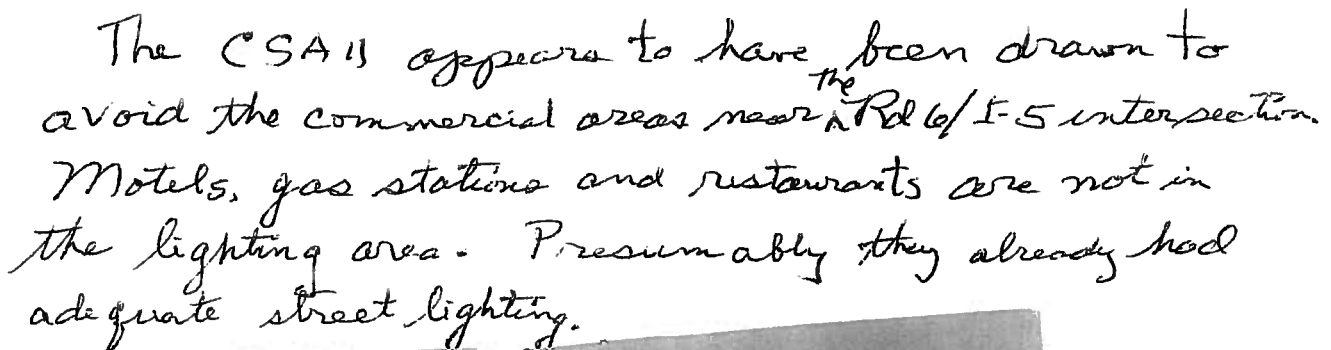 The CSA 11 appears to have been drawn to
avoid the commercial areas near the Rd 6/I-5 intersection.
Motels, gas stations and restaurants are not in
the lighting area. Presumably they already had
adequate street lighting.